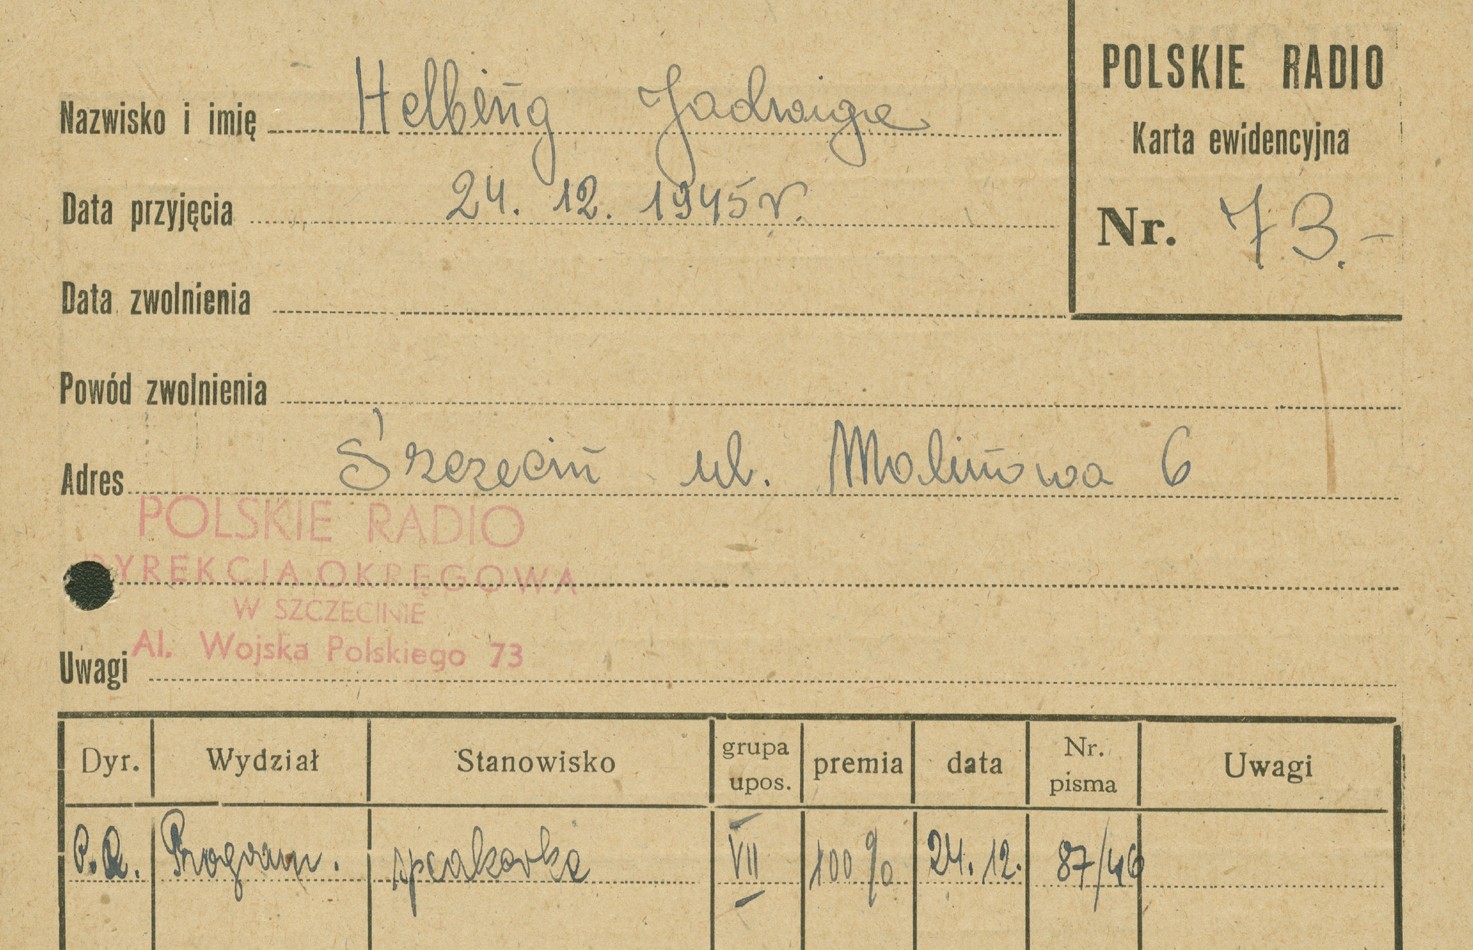 POLSKIE RADIO
Karta ewidencyjna
Nr. 73.-
Nazwisko i imię Helbing Jadwiga
Data przyjęcia 24. 12. 1945 r.
Data zwolnienia
Powód zwolnienia
Adres Szczecin ul. Malinowa 6
POLSKIE RADIO
DYREKCJA OKRĘGOWA
W SZCZECINIE
Al. Wojska Polskiego 73
Uwagi
Dyr. Wydział Stanowisko grupa upos. premia data Nr. pisma Uwagi
P.R. Program. speakerka VII 100% 24. 12. 87/46